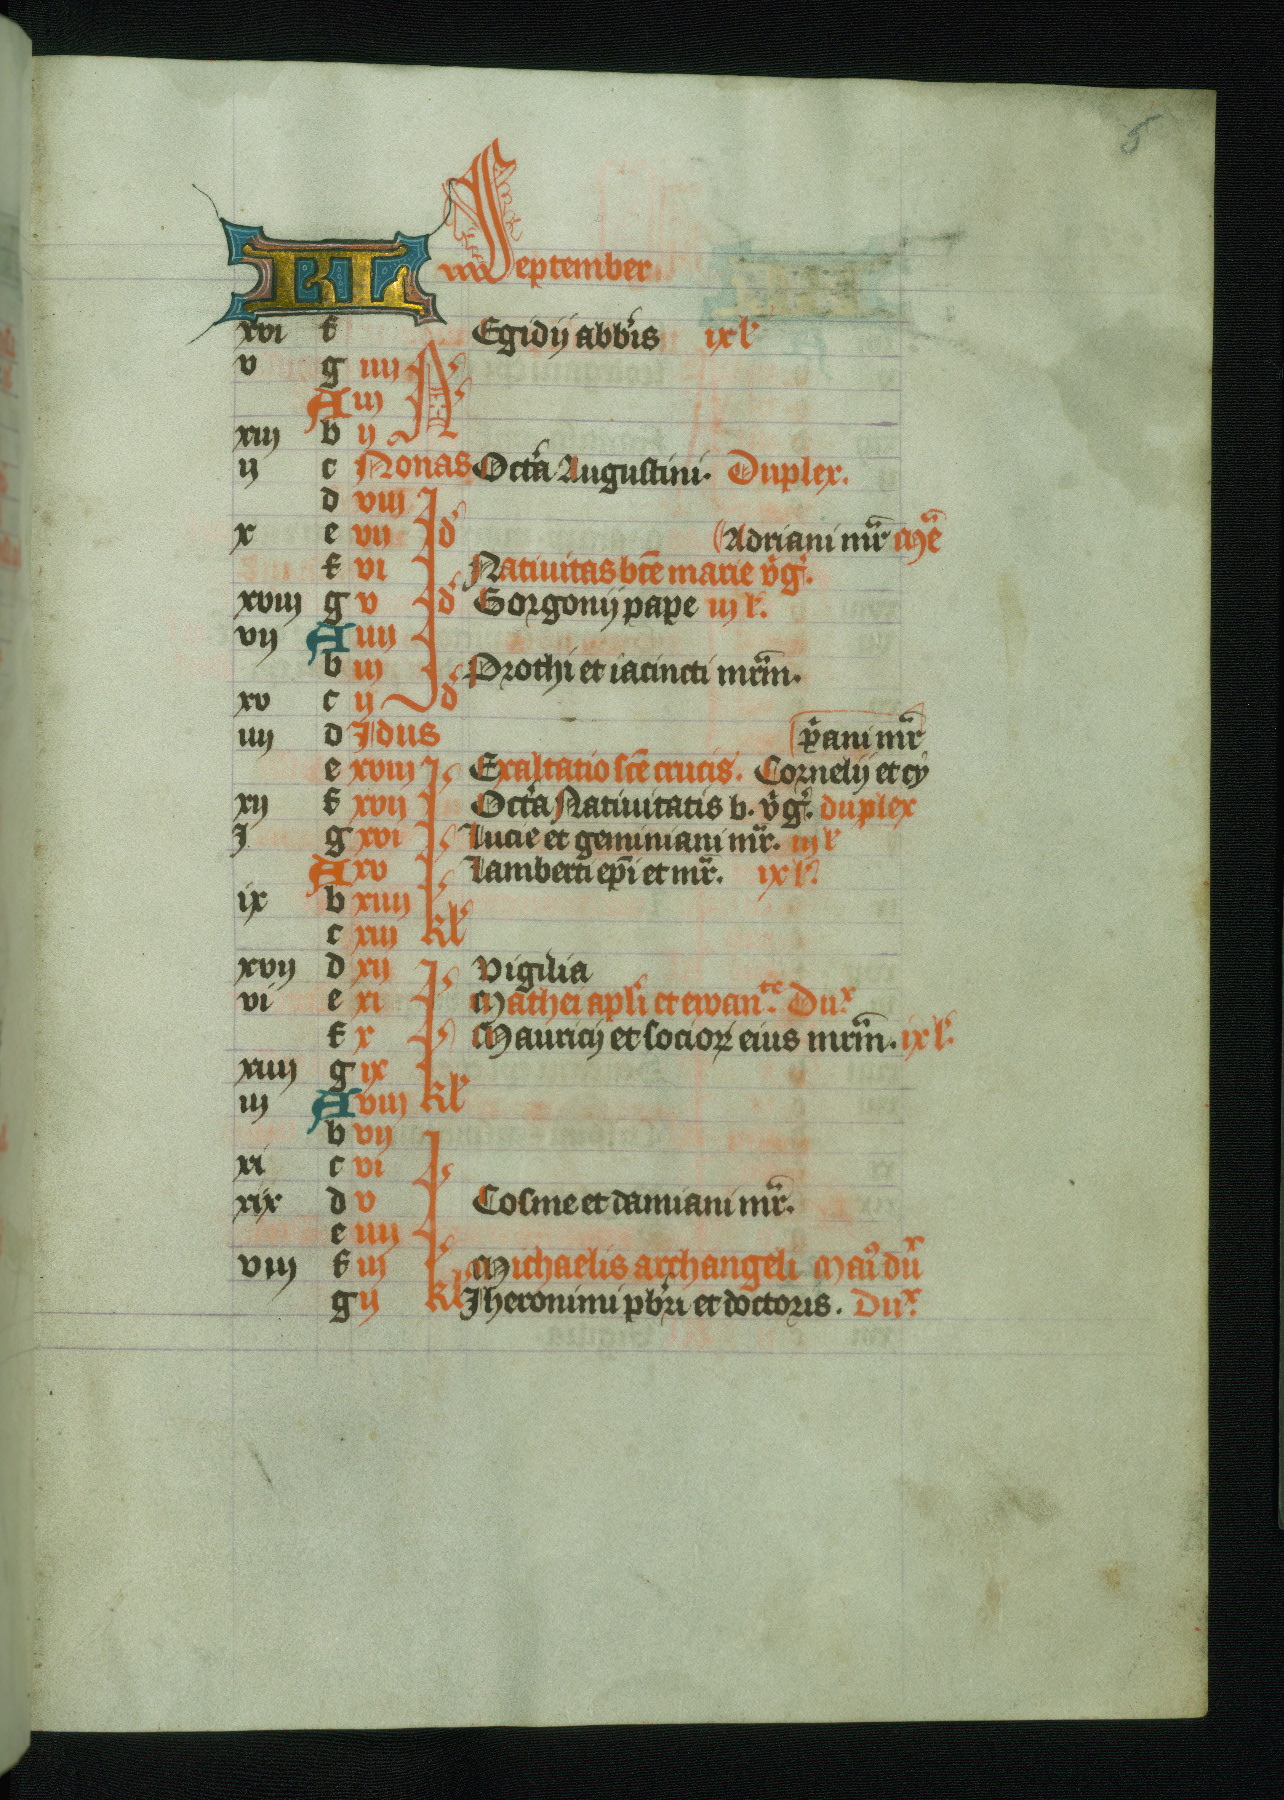 5
KL September
xvi f Egidij abb'is ix l'
v g iiii N'
A iii
xiii b ii N'
ij c Nonas Oct'a Augustini. Duplex.
d viii Id'
x e vii Id'
Adriani mr̄
f vi Natiuitas bt̄e marie v̄g'.
xviii g v Id' Gorgonij pape iii l'.
vij A iiii
b iii Prothi et iacincti mr̄m.
xv c ii Id'
iiij d Idus
p̄ani mr̄
e xviii Exaltatio sc̄e crucis. Cornelij et cy
xij f xvii Oct'a Natiuitatis b. v̄g'. duplex
j g xvi Lucie et geminiani mr̄. iij l'
A xv Lamberti ep̄i et mr̄. ix l'.
ix b xiiii
c xiii Kl'
xvij d xij Vigilia
vi e xi Mathei apl'i et ewan.te Du.x
f x Mauricij et socioꝝ eius mr̄m. ix l'.
xiiij g ix
iij A viij Kl'
b vij
xi c vi
xix d v Cosme et damiani mr̄.
e iiij
viij f iij Michaelis archangeli Mai9 dux
g ij Kl' Iheronimi pb'ri et doctoris. Du.x